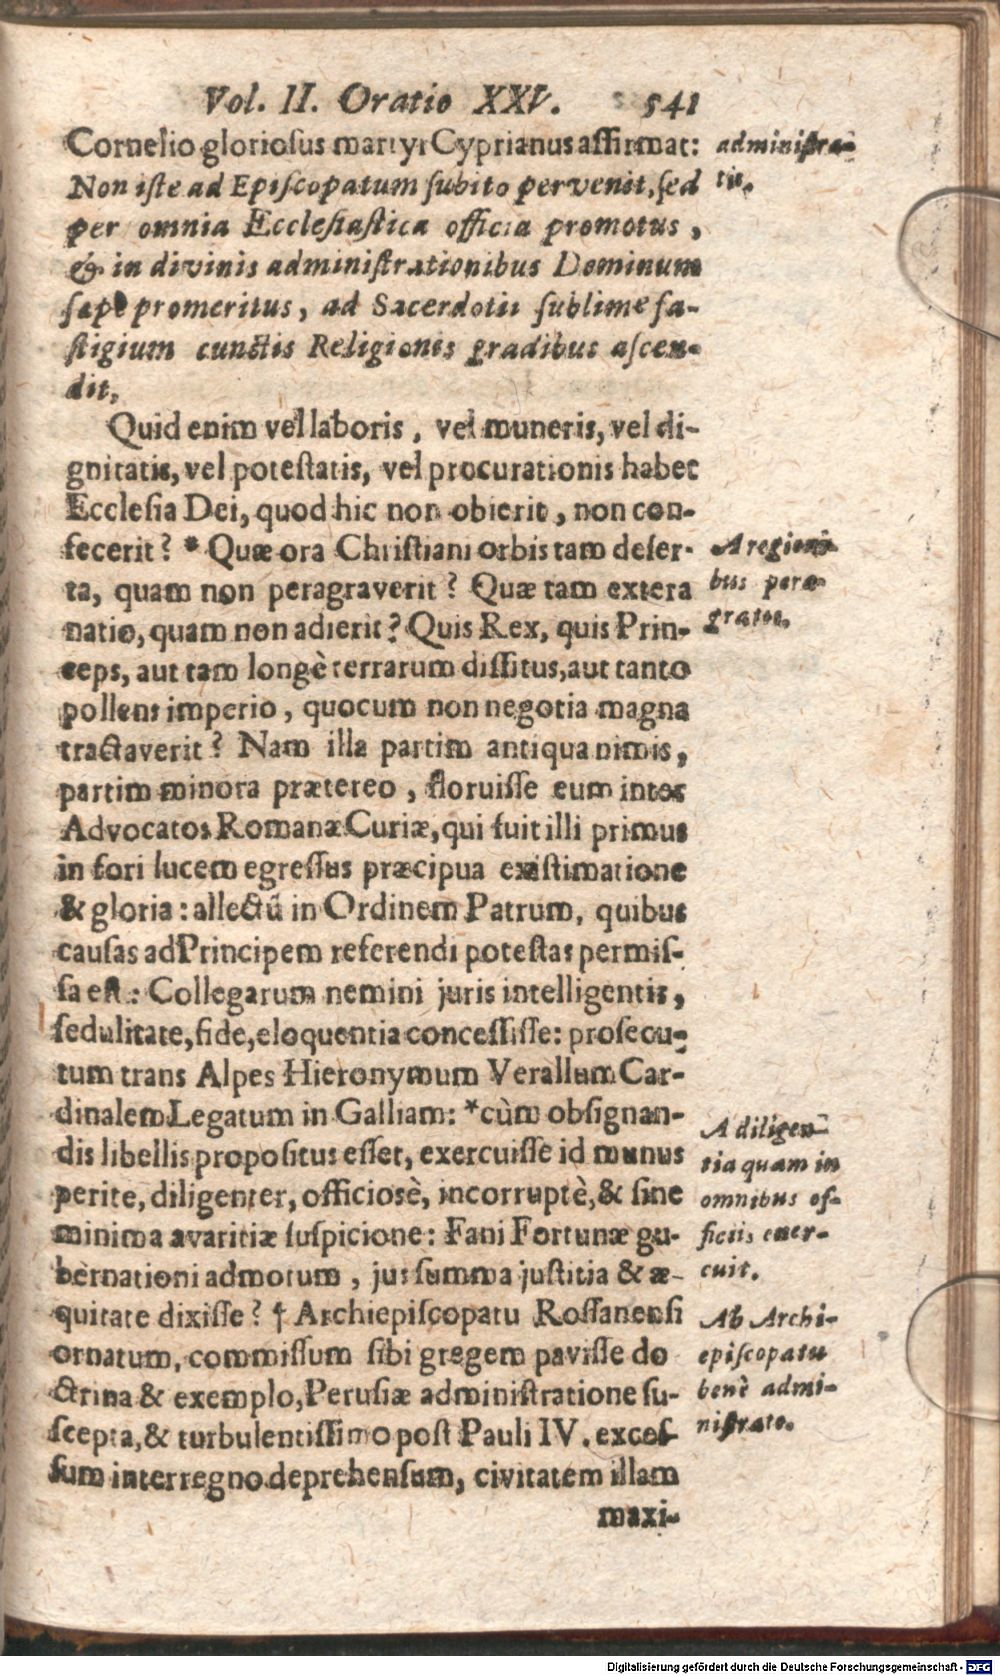 Vol. II. Oratio XXV. 541
Cornelio gloriosus martyr Cyprianus affirmat:
Non iste ad Episcopatum subito pervenit, sed
per omnia Ecclesiastica officia promotus,
& in divinis administrationibus Dominum
sæpe promeritus, ad Sacerdotii sublime fa-
stigium cunctis Religionis gradibus ascen-
dit.
administra-
tis.
Quid enim vel laboris, vel muneris, vel di-
gnitatis, vel potestatis, vel procurationis habet
Ecclesia Dei, quod hic non obierit, non con-
fecerit? * Quæ ora Christiani orbis tam deser-
ta, quam non peragraverit? Quæ tam extera
natio, quam non adierit? Quis Rex, quis Prin-
ceps, aut tam longè terrarum dissitus, aut tanto
pollens imperio, quocum non negotia magna
tractaverit? Nam illa partim antiqua nimis,
partim minora prætereo, floruisse eum inter
Advocatos Romanæ Curiæ, qui fuit illi primus
in fori lucem egressus præcipua existimatione
& gloria: allectũ in Ordinem Patrum, quibus
causas ad Principem referendi potestas permis-
sa est: Collegarum nemini juris intelligentis,
sedulitate, fide, eloquentia concessisse: prosecu-
tum trans Alpes Hieronymum Verallum Car-
dinalem Legatum in Galliam: * cùm obsignan-
dis libellis propositus esset, exercuisse id munus
perite, diligenter, officiosè, incorruptè, & sine
minima avaritiæ suspicione: Fani Fortunæ gu-
bernationi admotum, jus summa justitia & æ-
quitate dixisse? † Archiepiscopatu Rossanensi
ornatum, commissum sibi gregem pavisse do
ctrina & exemplo, Perusiæ administratione su-
scepta, & turbulentissimo post Pauli IV. exces-
sum interregno deprehensum, civitatem illam
maxi-
A regioni-
bus pera-
gratos.
A diligen-
tia quam in
omnibus of-
ficiis exer-
cuit.
Ab Archi-
episcopatu
benè admi-
nistrato.
Digitalisierung gefördert durch die Deutsche Forschungsgemeinschaft - DFG